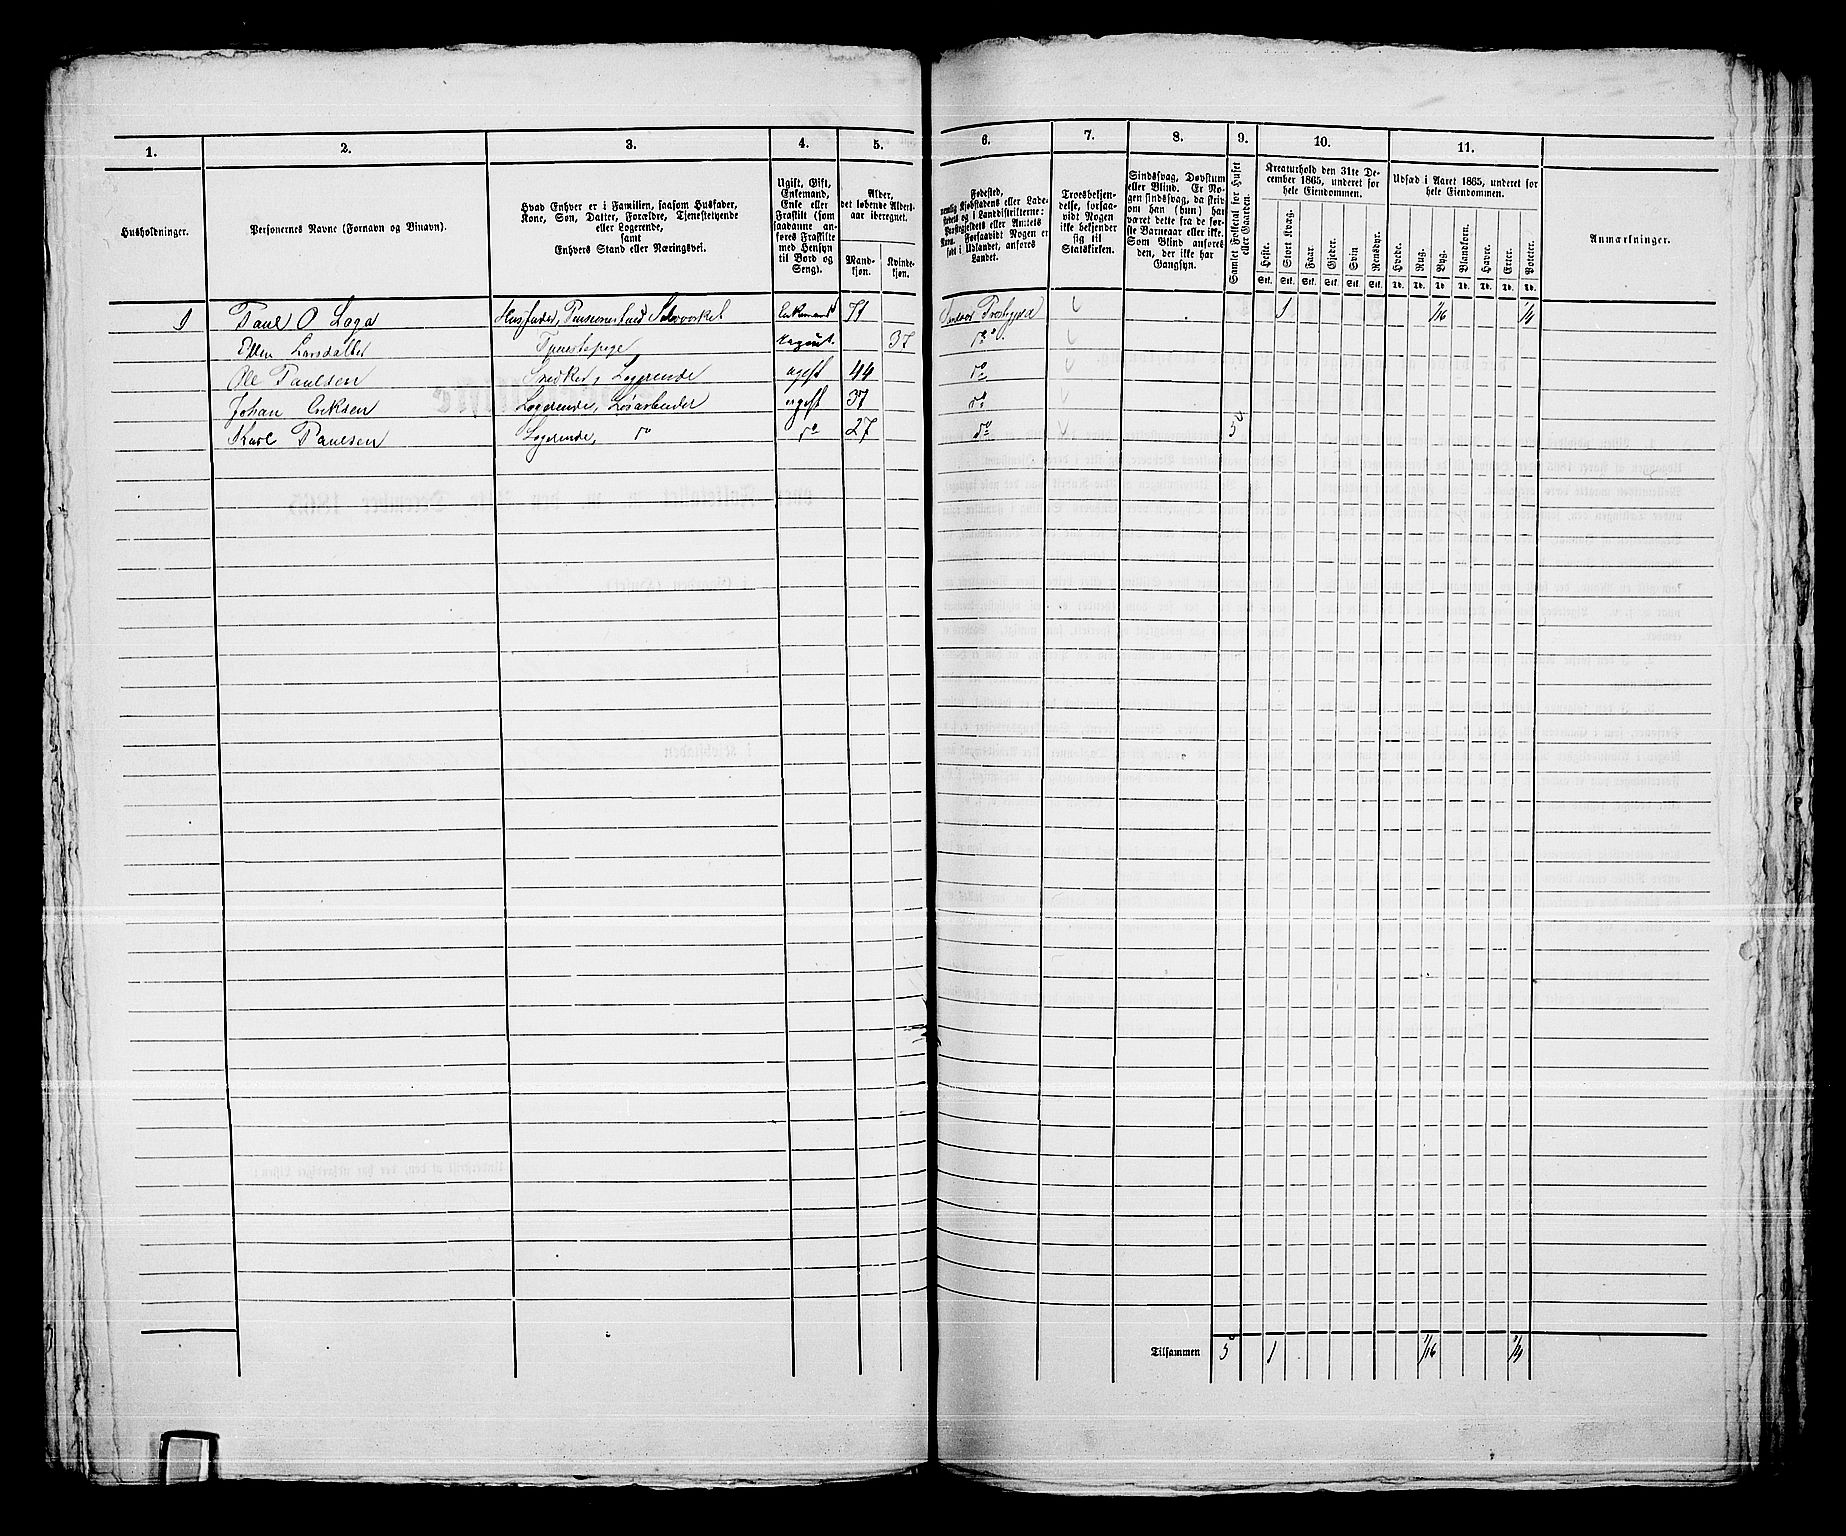 1. 2. 3. 4. 5. 6. 7. 8. 9. 10. 11.
Husholdninger.
Personernes Navne (Fornavn og Binavn).
Hvad Enhver er i Familien, saasom Husfader,
Kone, Søn, Datter, Forældre, Tjenestetyende
eller Logerende,
samt
Enhvers Stand eller Næringsvei.
Ugift, Gift,
Enkemand,
Enke eller
Fraskilt (som
saadanne an-
føres Fraskilte
med Hensyn
til Bord og
Seng).
Alder,
det løbende Alders-
aar iberegnet.
Mand-
kjøn.
Kvinde-
kjøn.
Fødested,
Troesbekjen-
delse, forsaa-
vidt Nogen
ikke bekjender
sig til
Statskirken.
Sindssvag, Døvstum
eller Blind. Er No-
gen sindssvag, da skriv
om han (hun) har
været dette fra de før-
ste Barneaar eller ikke.
Som Blind anføres
den, der ikke har
Gangsyn.
Samlet Folketal for Huset
eller Gaarden.
Kreaturhold den 31te De-
cember 1865, underet for
hele Eiendommen.
Heste. Stort Kvæg. Faar. Gjeder. Svin Rensdyr.
Stk. Stk. Stk. Stk. Stk. Stk.
Udsæd i Aaret 1865, underet for
hele Eiendommen.
Hvede. Rug. Byg. Blandkorn. Havre. Erter. Poteter.
Td. Td. Td. Td. Td. Td. Td.
Anmærkninger.
1 Paul O Loga Husfader, Enkemand 71 1 1/16 1/4
Ellen Larsdatter Tjenestepige 37 do
Ole Paulsen Snedker, Logerende ugift 44 do
Johan Eriksen Logerende, Løsarbeider ugift 37 do
Karl Paulsen Logerende, do do 27 do 5
Tilsammen 5 1 1/16 1/4